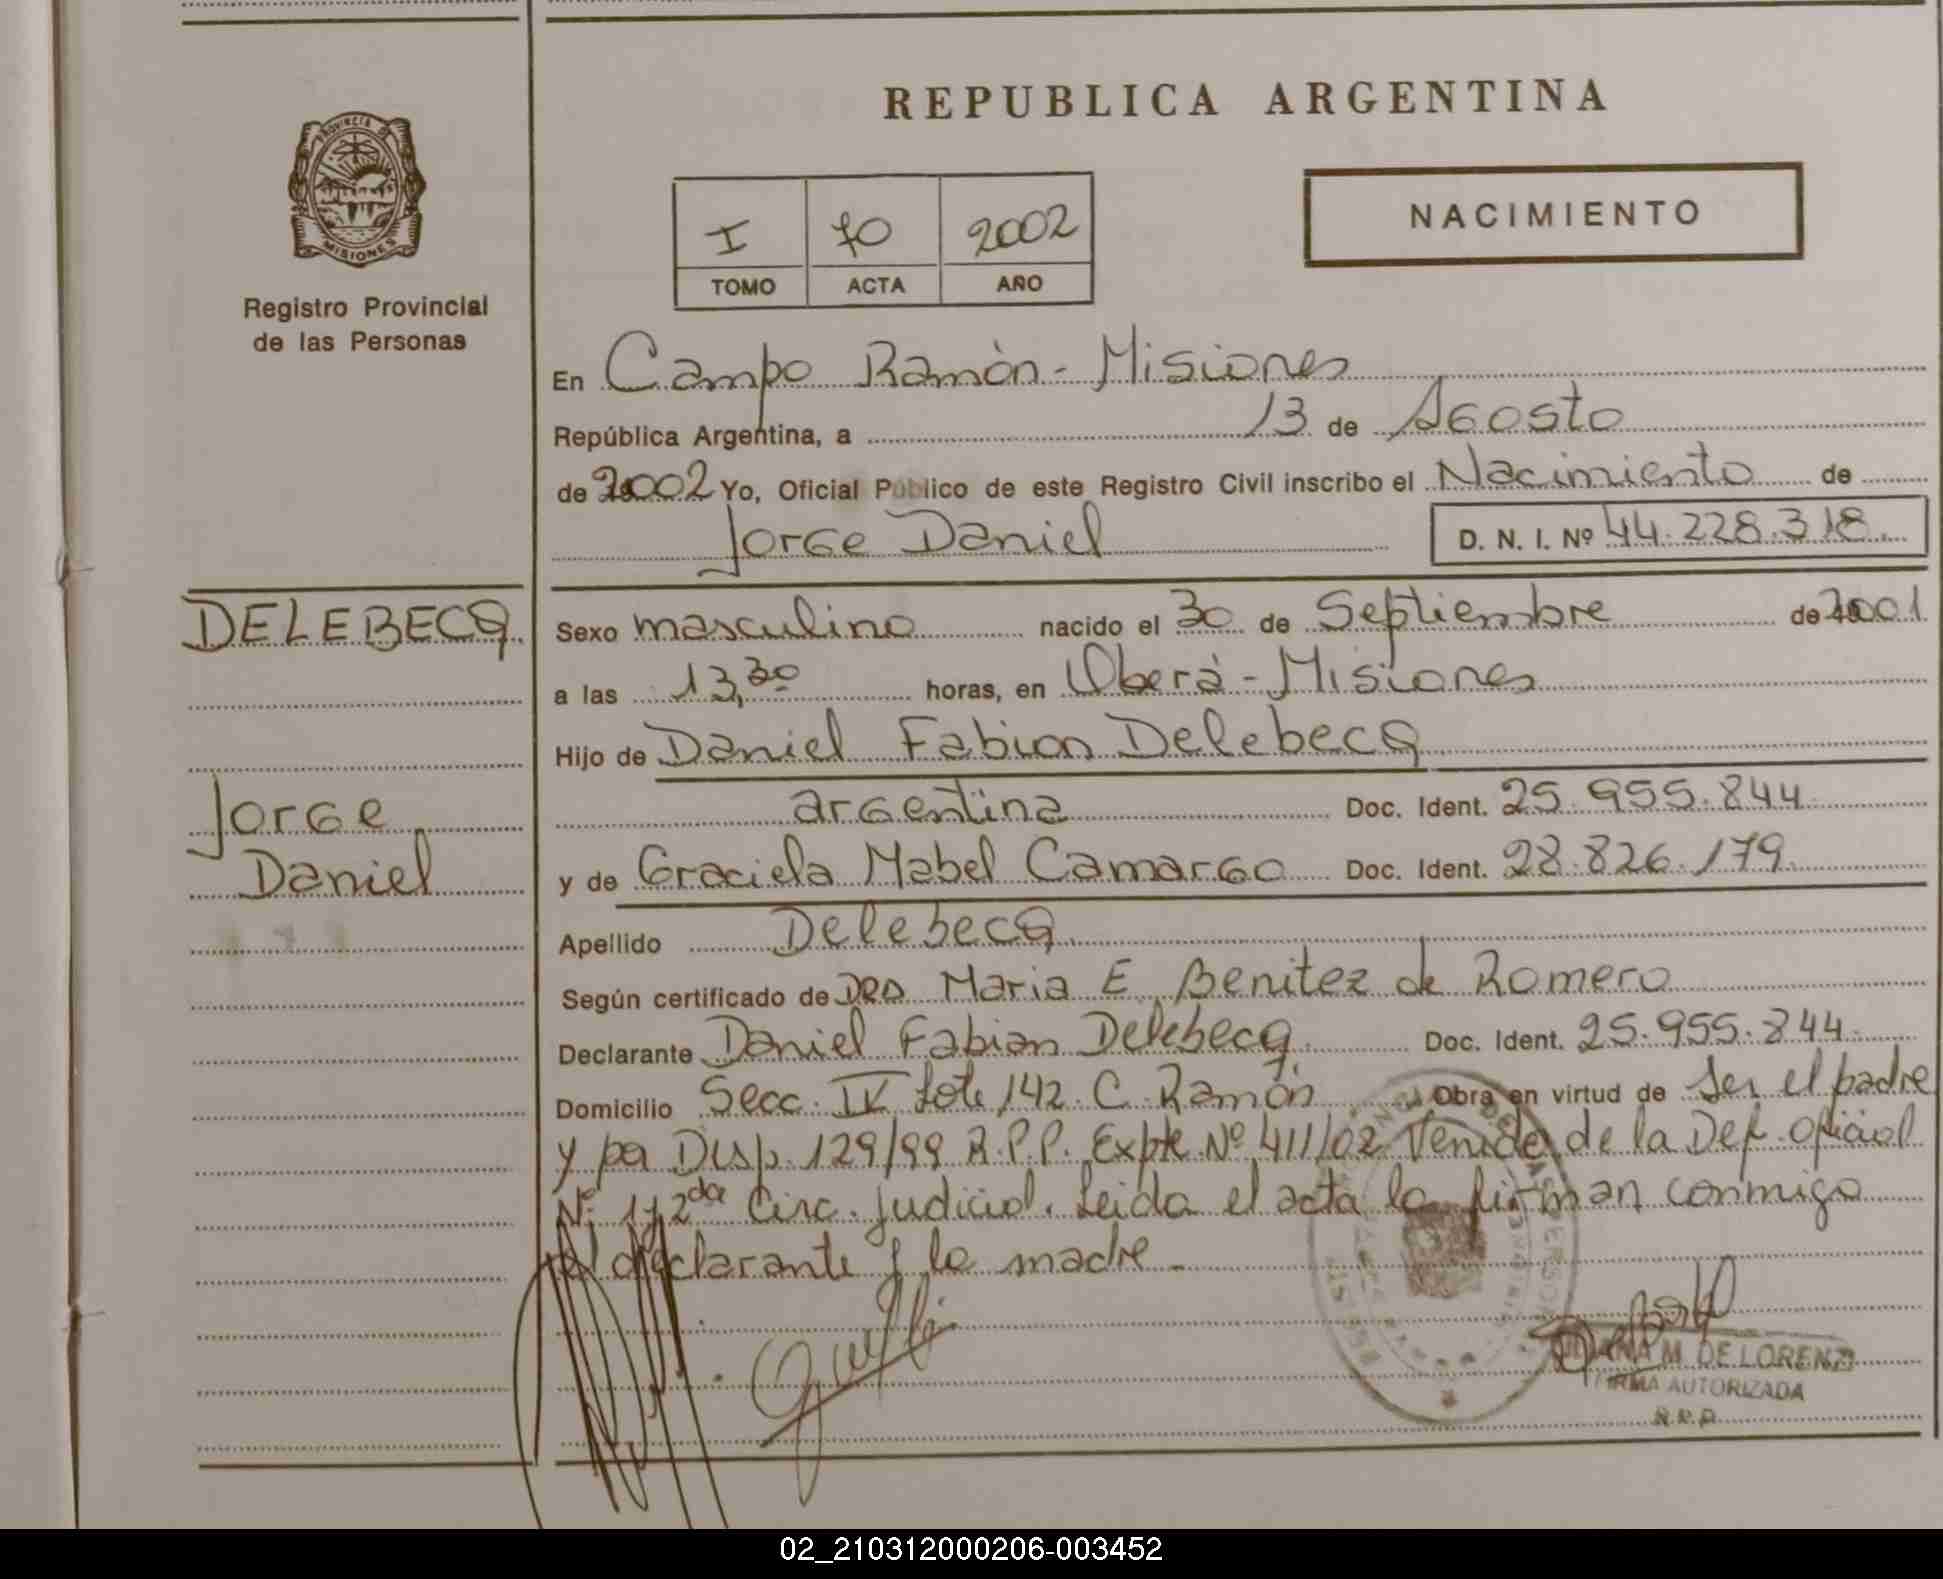 REPUBLICA ARGENTINA
PROVINCIA DE
MISIONES
Registro Provincial
de las Personas
NACIMIENTO
I 70 2002
TOMO ACTA AÑO
En Campo Ramón - Misiones
República Argentina, a 13 de Agosto
de 2002 Yo, Oficial Público de este Registro Civil inscribo el Nacimiento de
Jorge Daniel D. N. I. Nº 44.228.318.
DELEBECQ
Jorge
Daniel
Sexo masculino nacido el 30 de Septiembre de 2001
a las 13,30 horas, en Oberá - Misiones
Hijo de Daniel Fabian Delebecq
argentina Doc. Ident. 25.955.844
y de Graciela Mabel Camargo Doc. Ident. 28.826.179
Apellido Delebecq
Según certificado de Maria E. Benitez de Romero
Declarante Daniel Fabian Delebecq. Doc. Ident. 25.955.844
Domicilio Secc. IV Lote 142. C. Ramón Obra en virtud de Ser el padre
y por Disp. 129/99 R.P.P. Expte Nº 411/02 Venida de la Def. oficial
Nº 1 y 2da Circ. Judicial. Leida el acta la firman conmigo
el declarante y la madre -
M. DE LORENZI
FIRMA AUTORIZADA
R.P.P.
02_210312000206-003452